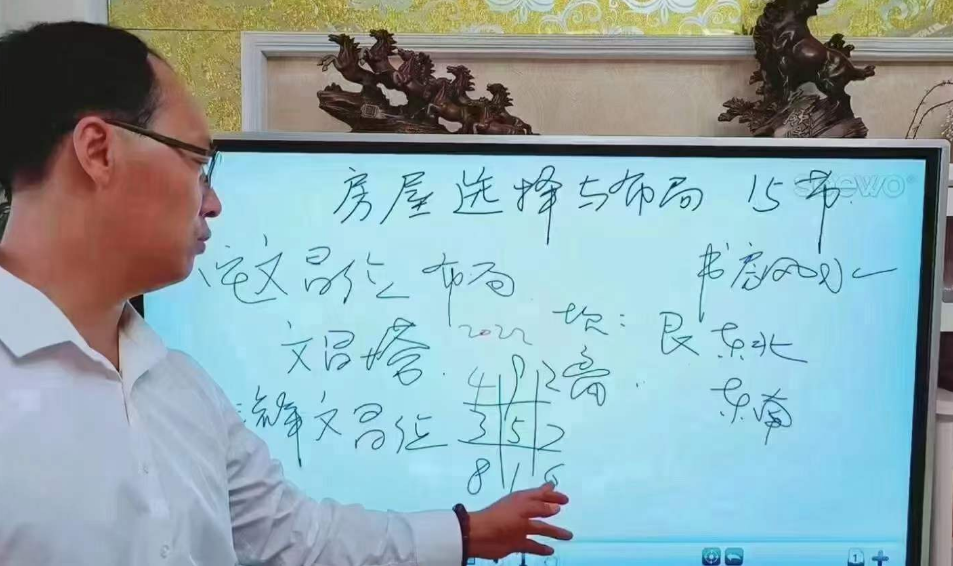 房屋选择与布局 15节
seewo
宅文昌位 布局
书房风水
文昌塔.
2022
坎: 艮 东北
离. 东南
文昌位
4 9 2
3 5 7
8 1 6
1